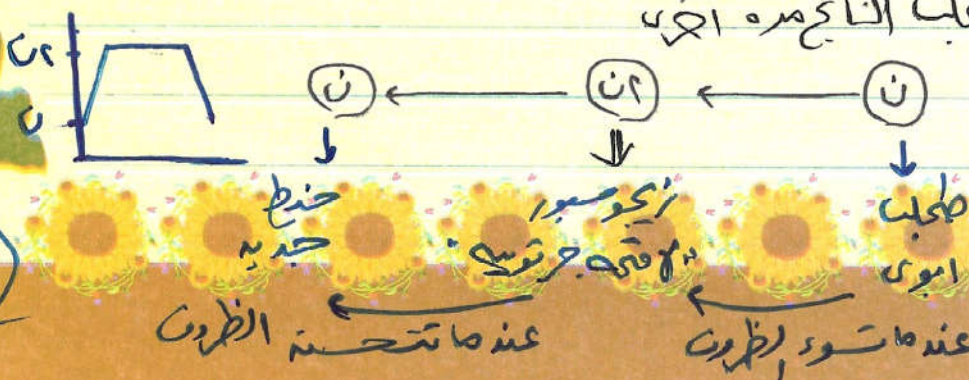 الناتج مره اخرى
ن ← ٢ن ← ن
٢ن
ن
طحلب ابوى
زيجوسبور "لاقحه جرثوميه"
خيط جديد
عندما تسوء الظروف
عندما تتحسن الظروف